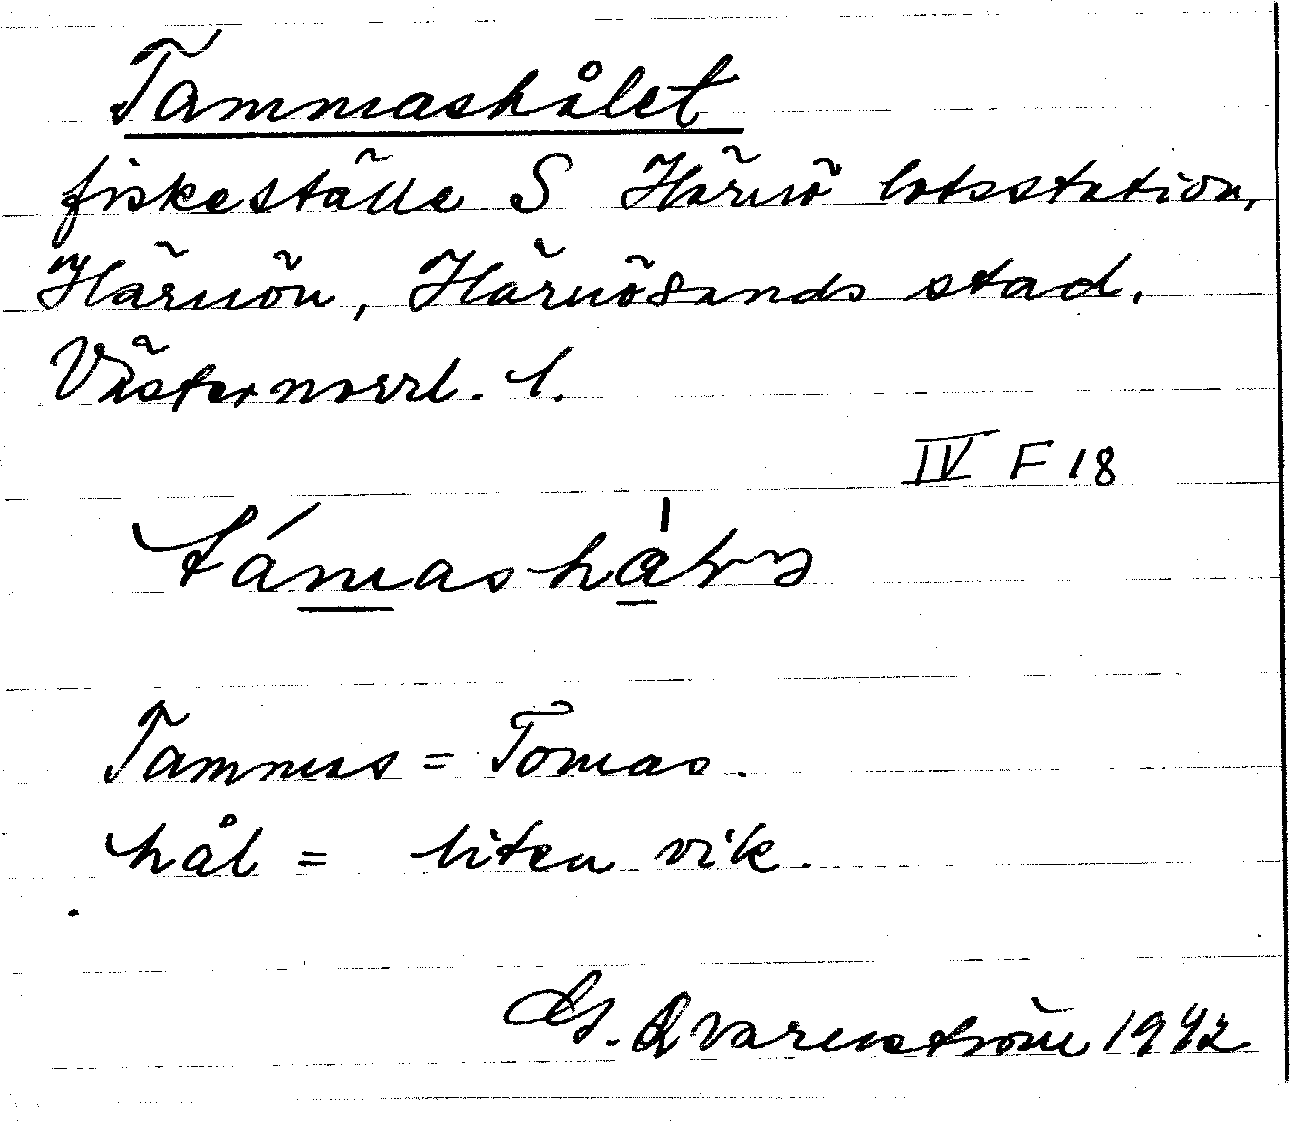 Tammashålet
fiskeställe S Härnö lotsstation,
Härnön, Härnösands stad.
Västernorrl. l.
IV F 18
Tammas = Tomas.
hål = liten vik.
Qvarnström 1942